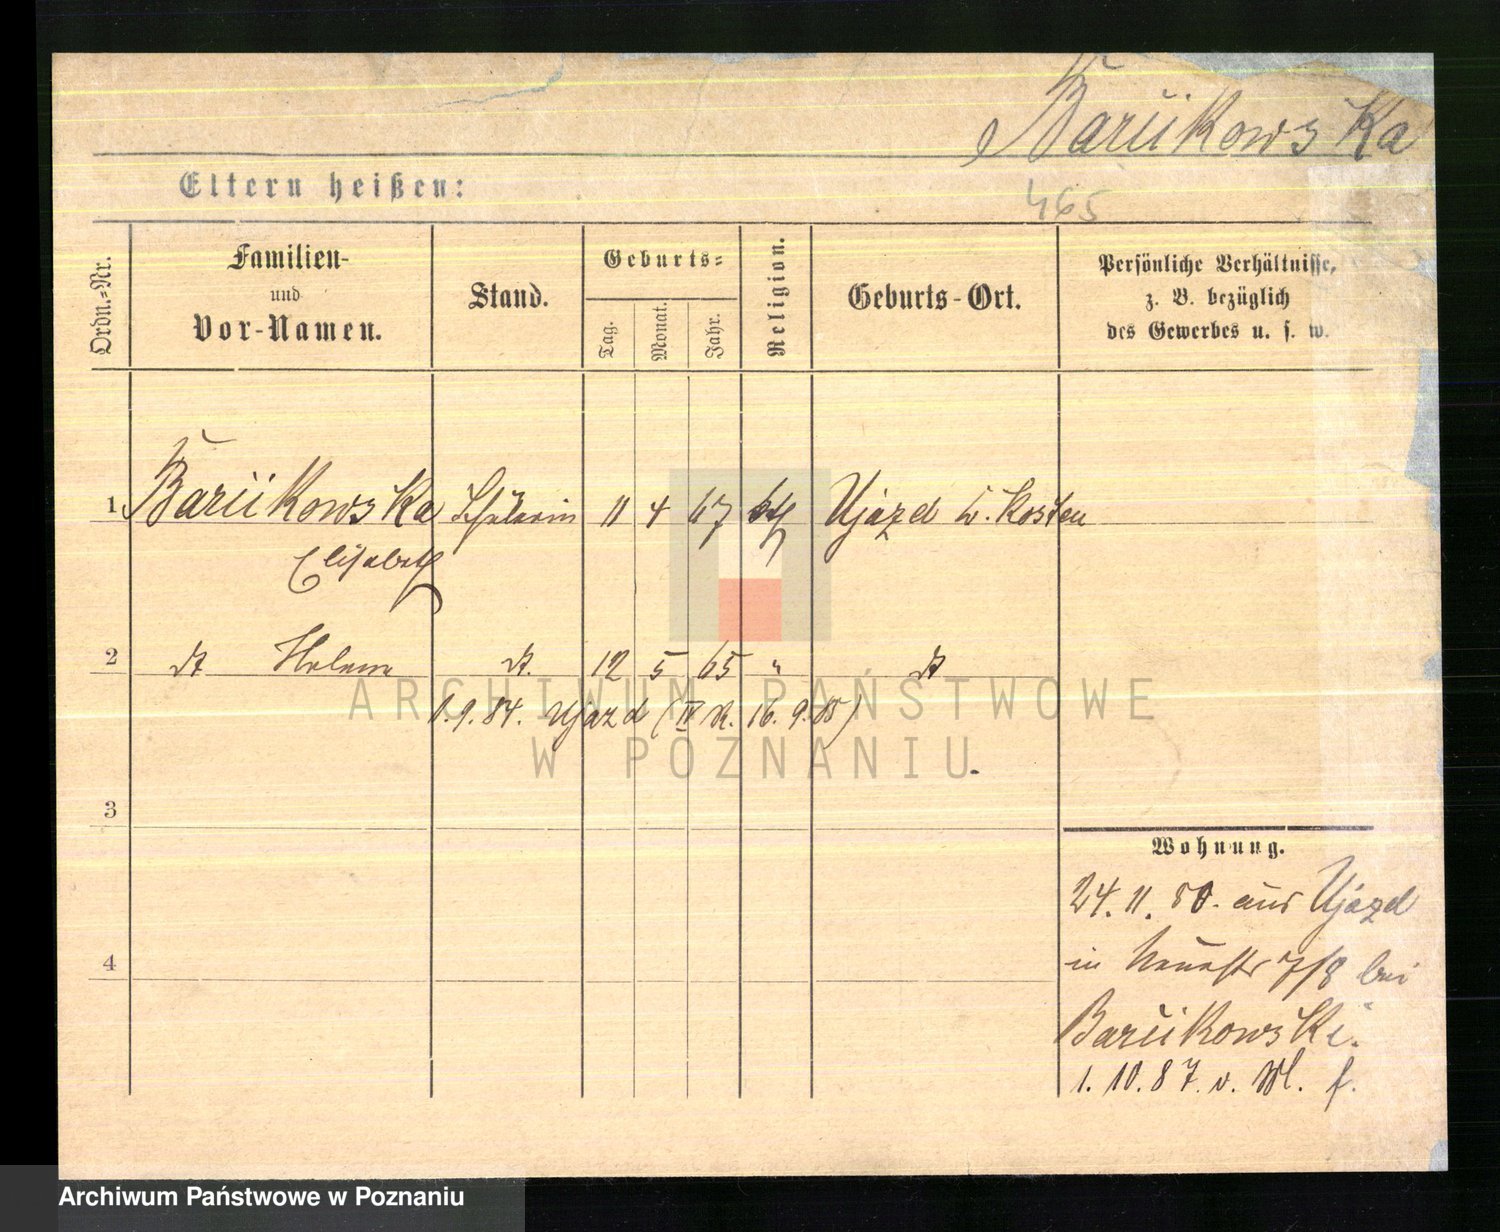 Barcikowska
465
Eltern heißen:
Ordn.-Nr.
Familien-
und
Vor-Namen.
Stand.
Geburts-
Tag.
Monat.
Jahr.
Religion.
Geburts-Ort.
Persönliche Verhältnisse,
z. B. bezüglich
des Gewerbes u. s. w.
1 Barcikowska Schülerin 11 4 67 kth Ujazd b. Kosten
Elisabeth
2 dt Helene dt. 12 5 65 " dt
1.9.84. Ujazd (IV R. 16.9.85)
3
Wohnung.
24. 11. 80. aus Ujazd
4
in Neuestr 7/8 bei
Barcikowski.
1. 10. 87. v.
ARCHIWUM PAŃSTWOWE
W POZNANIU
Archiwum Państwowe w Poznaniu